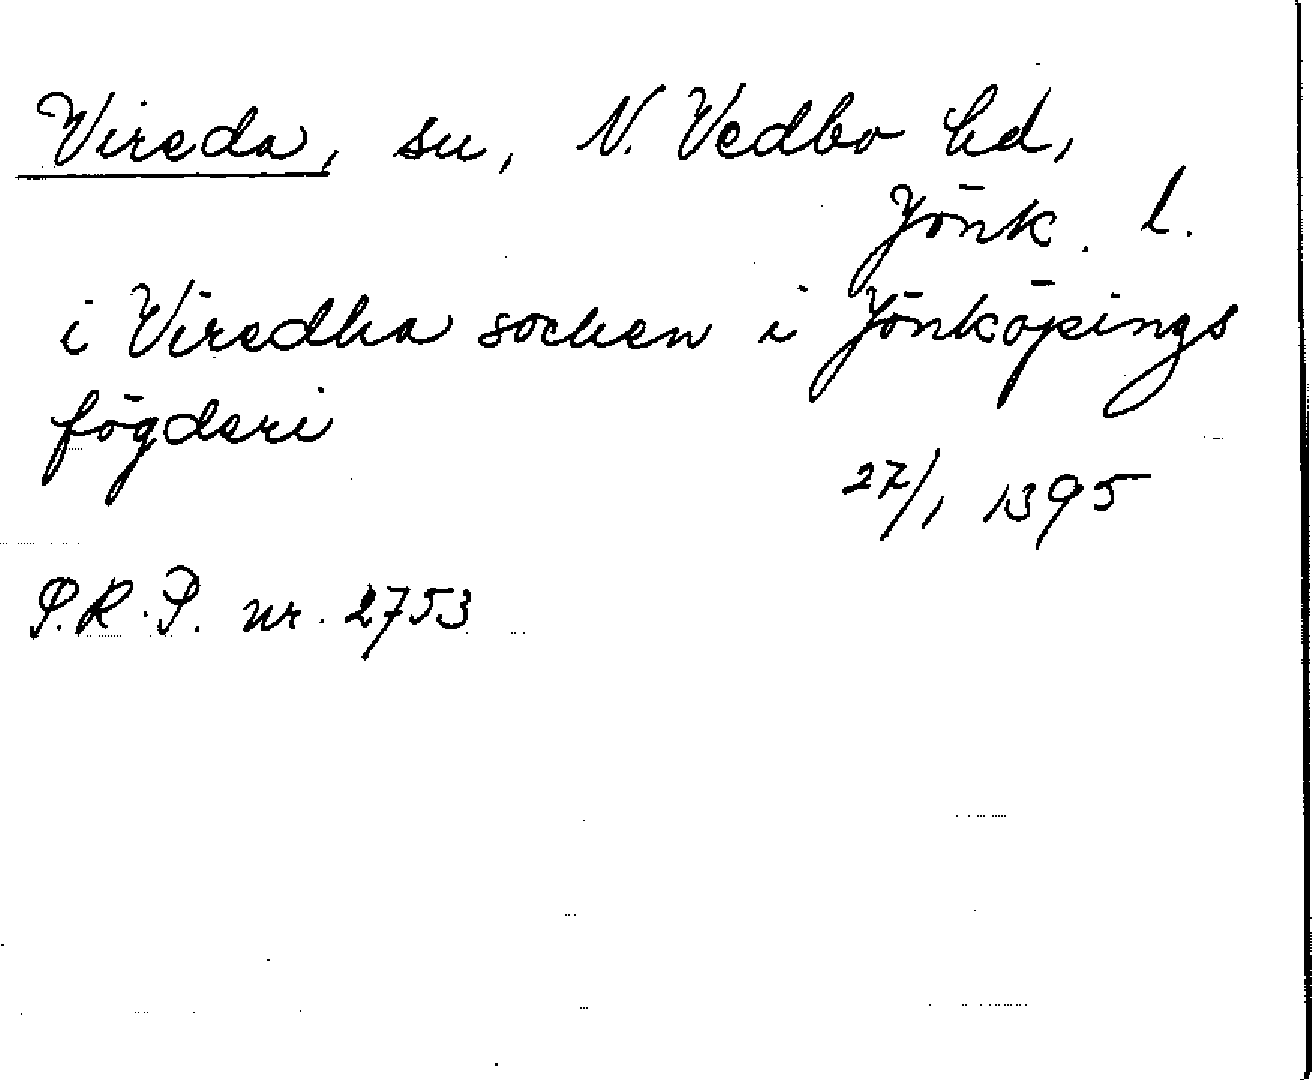 Vireda, sn, N. Vedbo hd,
Jönk. l.
i Viredha socken i Jönköpings
fögderi
27/1 1395
S.R.P. nr. 2753